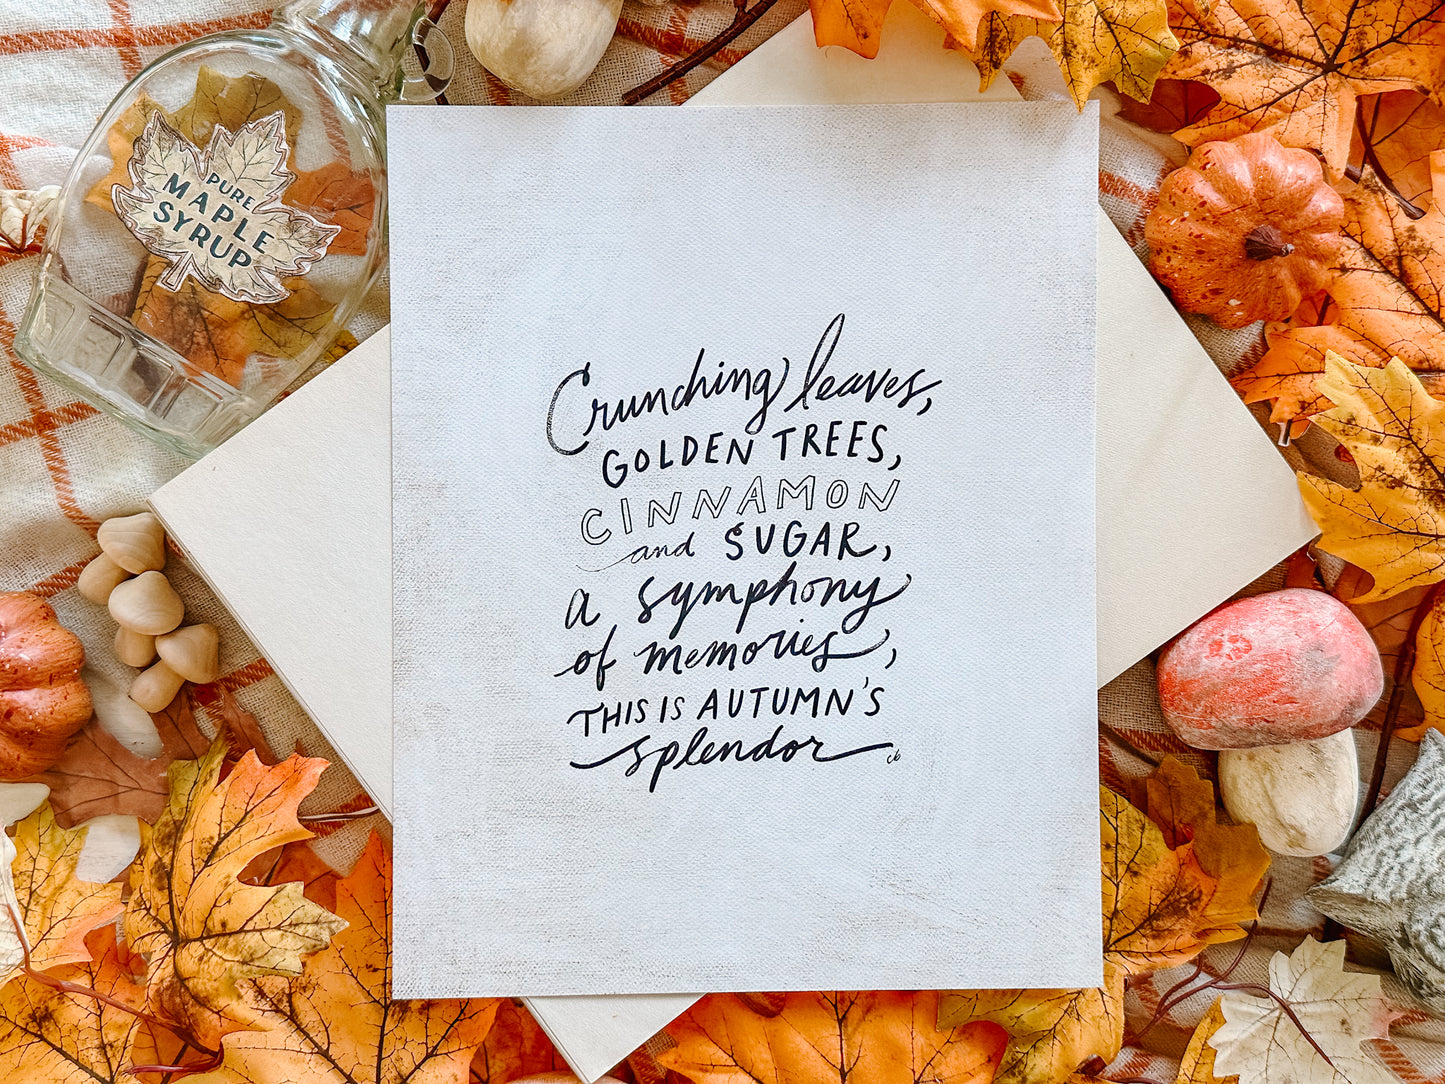 PURE
MAPLE
SYRUP
Crunching leaves,
GOLDEN TREES,
CINNAMON
and SUGAR,
a symphony
of memories,
THIS IS AUTUMN'S
splendor
cb